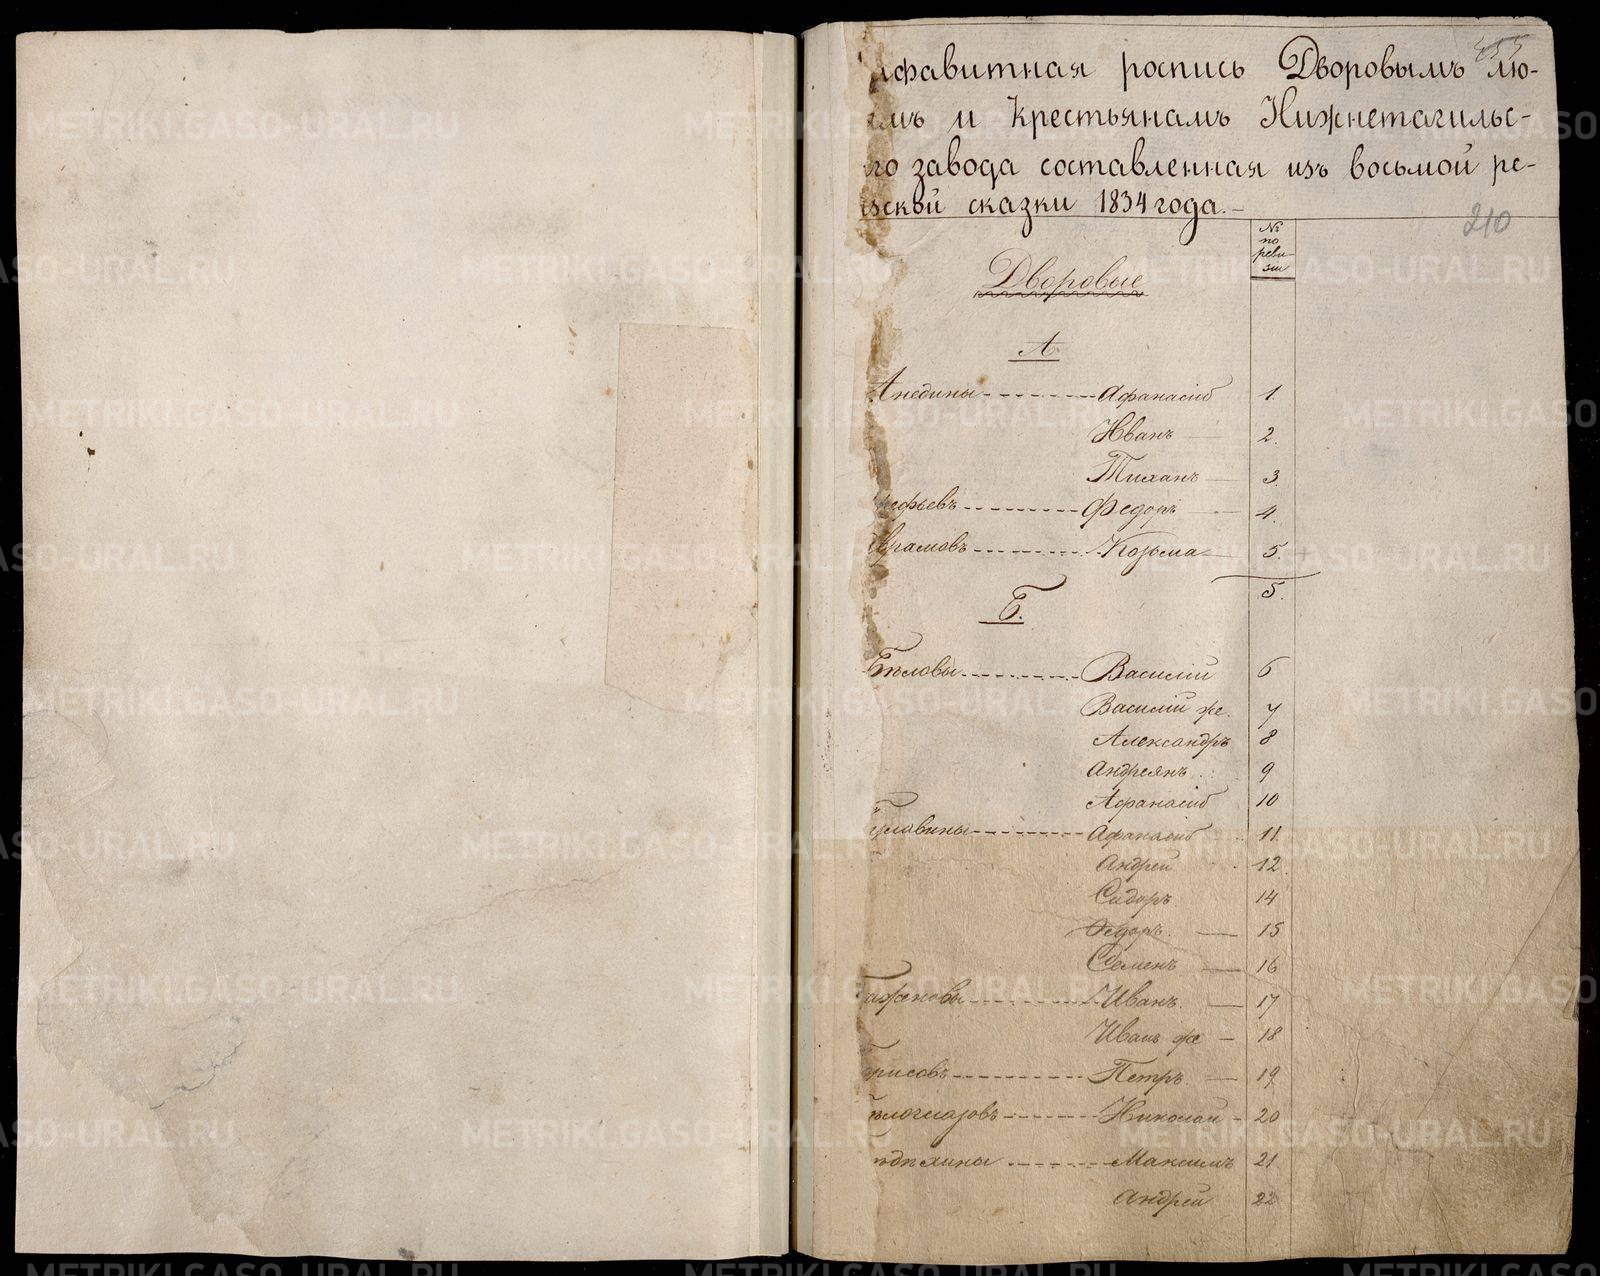 лфавитная роспись Дворовымъ лю-
мъ и Крестьянамъ Нижнетагильс-
го завода составленная изъ восьмой ре-
зской сказки 1834 года.-
210
№ по ревизіи
Дворовые
А
Афанасій 1.
Иванъ 2.
Тиханъ 3.
рефьевъ Федоръ 4.
врамовъ Козьма 5.
5.
Б.
Бѣловы Василій 6
Василій же 7
Александръ 8
Андреянъ 9
Афанасій 10
Афанасій 11.
Андрей 12.
Сидоръ 14
Федоръ. 15
Семенъ 16
Иванъ. 17
Иванъ же 18
рисовъ Петръ. 19
ѣлоглазовъ Николай 20
Максимъ 21
Андрей 22
METRIKI.GASO-URAL.RU